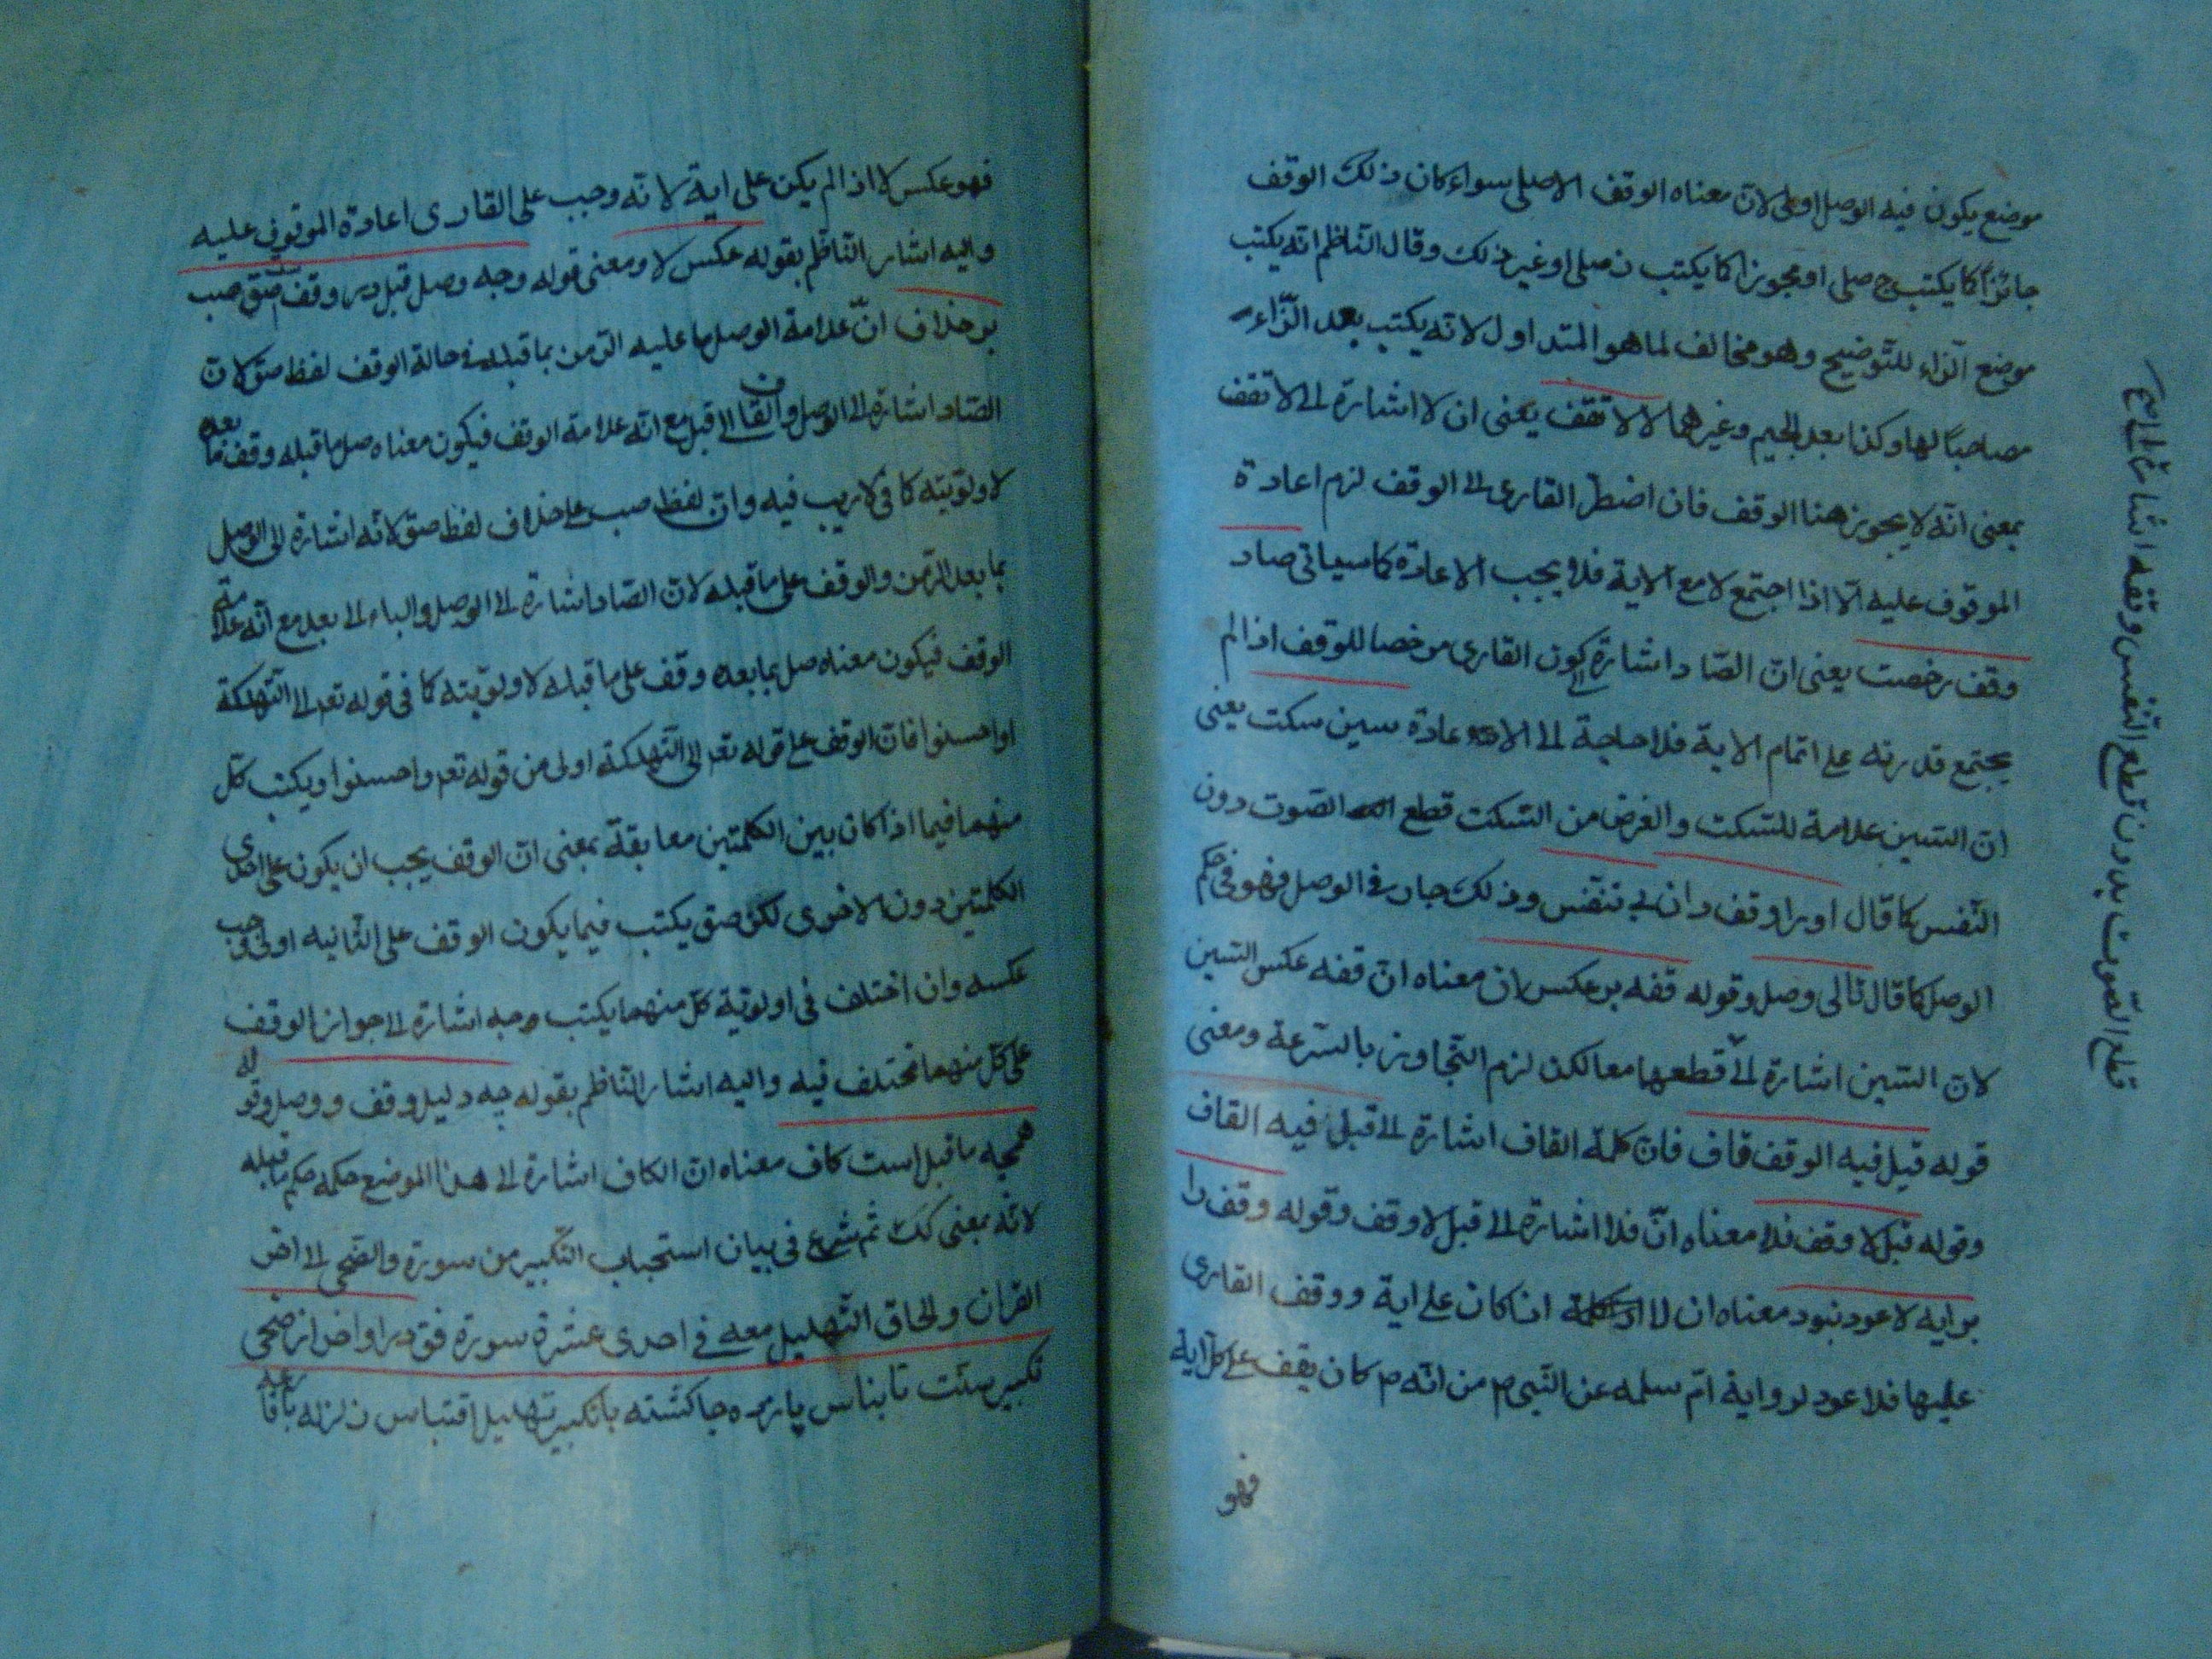 موضع يكون فيه الوصل اولى لان معناه الوقف الاصلى سواء كان ذلك الوقف
جائزا كما يكتب ج صلى او مجوزا كما يكتب ز صلى او غير ذلك وقال الناظم انه يكتب
موضع الزاء للتوضيح وهو مخالف لما هو المتداول لانه يكتب بعد الزاء
مصاحبا لها وكذا بعد الجيم وغيرهما لا لا تقف يعنى ان لا اشارة الى لا تقف
بمعنى انه لا يجوز هنا الوقف فان اضطر القارى الى الوقف لزم اعادة
الموقوف عليه الا اذا اجتمع لا مع الاية فلا يجب الاعادة كما سياتى صاد
وقف رخصت يعنى ان الصاد اشارة الى كون القارى مرخصا للوقف اذا لم
يجتمع قدرته على اتمام الاية فلا حاجة الى الاعادة سين سكت يعنى
ان السين علامة للسكت والغرض من السكت قطع الصوت دون
النفس كما قال اورا وقف دان بى تنفس وذلك جار فى الوصل فهو فى حكم
الوصل كما قال تالى وصل وقوله قفه بر عكس ان معناه ان قفه عكس السين
لان السين اشارة الى قطعهما معا لكن لزم التجاوز بالسرعة ومعنى
قوله قيل فيه الوقف قاف فان كلمة القاف اشارة الى قيل فيه القاف
وقوله قيل لا وقف فلا معناه ان فلا اشارة الى قيل لا وقف وقوله وقف را
بر ايه لا عود نبود معناه ان لا ان كان على اية ووقف القارى
عليها فلا عود لرواية ام سلمه عن النبى م من انه م كان يقف على كل اية
فهو
قطع الصوت بدون قطع النفس وقفه اشارة الى
فهو عكس لا اذا لم يكن على اية لانه وجب على القارى اعادة الموقوف عليه
واليه اشار الناظم بقوله عكس لا ومعنى قوله وجه وصل قبل در وقف صق صب
بر خلاف ان علامة الوصل ما عليه الرمن بما قبله فى حالة الوقف لفظ صق لان
الصاد اشارة الى الوصل والقاف الى قبل مع انه علامة الوقف فيكون معناه صل ما قبله وقف ما بعده
لاولويته كما فى لا ريب فيه وان لفظ صب على خلاف لفظ صق لانه اشارة الى الوصل
بما بعد الرمن والوقف على ما قبله لان الصاد اشارة الى الوصل والباء الى بعد مع انه علامة
الوقف فيكون معناه صل بما بعده وقف على ما قبله لاولويته كما فى قوله تعه الى التهلكة
او احسنوا فان الوقف على قوله تعه الى التهلكة اولى من قوله تعه واحسنوا ويكتب كل
منهما فيما اذا كان بين الكلمتين معانقة بمعنى ان الوقف يجب ان يكون على احدى
الكلمتين دون الاخرى لكن صق يكتب فيما يكون الوقف على الثانيه اولى وصب
عكسه وان اختلف فى اولوية كل منهما يكتب وجه اشارة الى جواز الوقف
على كل منهما مختلف فيه واليه اشار الناظم بقوله جه دليل وقف ووصل وقوله
همچه ما قبل است كاف معناه ان الكاف اشارة الى هذا الموضع حكمه حكم ما قبله
لانه بمعنى كك ثم شرع فى بيان استحباب التكبير من سورة والضحى الى اخر
القران والحاق التهليل معه فى احدى عشرة سورة فوق در اواخر از ضحى
تكبير سنت تا بناس يازده جا كشته با تكبير تهليل اقتباس زلزله با